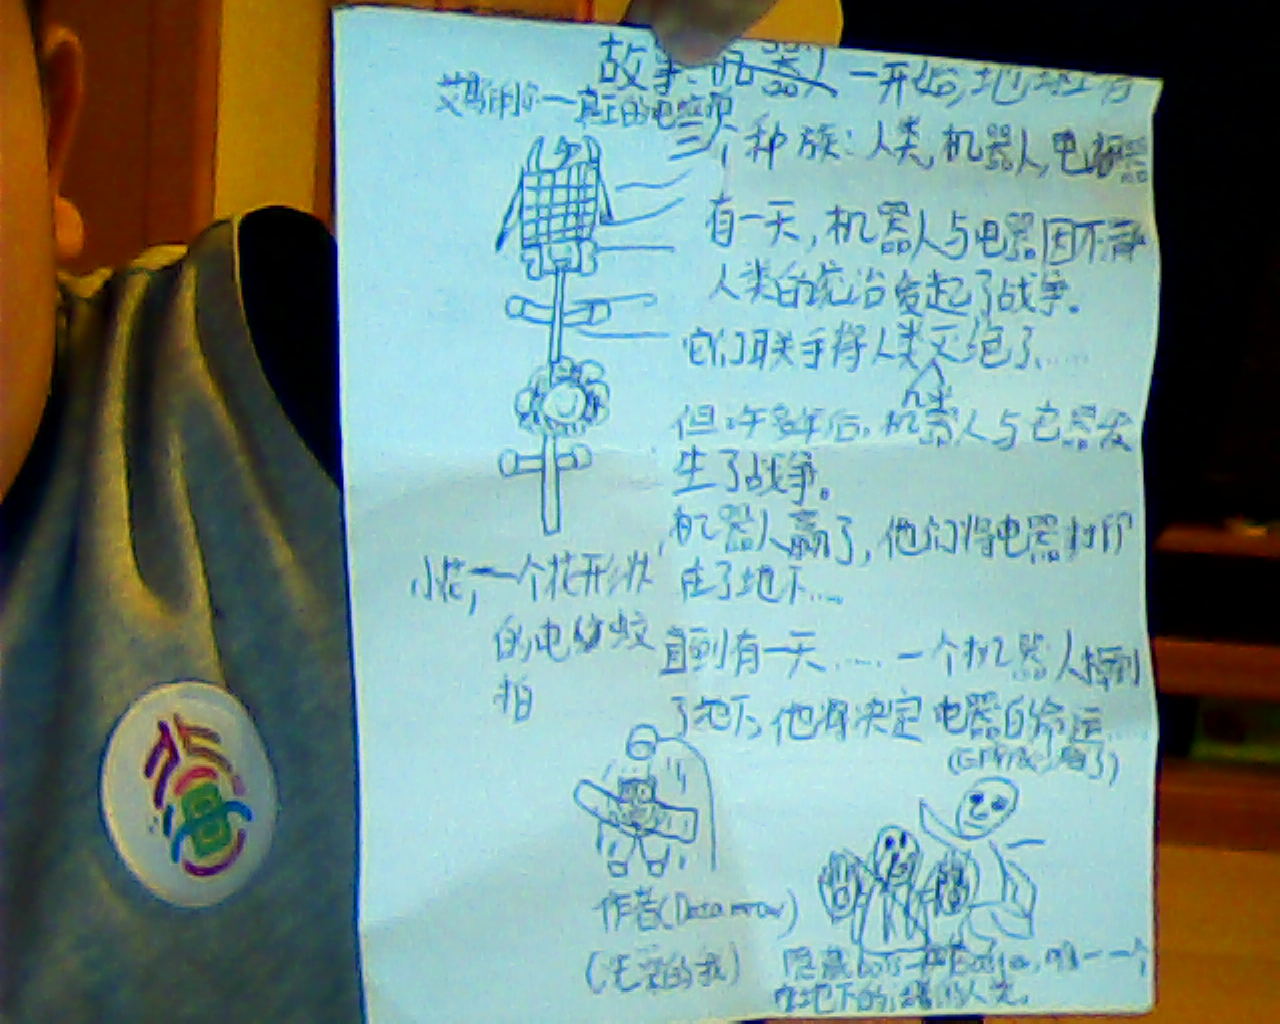 故事:
一开始,地球上有
三个种族:人类,机器人,电器
有一天,机器人与电器因不满
人类的统治发起了战争。
它们联手将人类灭绝了……
但许多年后,机器人与电器发
生了战争。
机器人赢了,他们将电器封印
在了地下……
直到有一天……一个机器人掉到
了地下,他将决定电器的命运……
一真正的电
小花,一个花形状
的电蚊
拍
作者(
的我)
隐藏
地下的,人类。